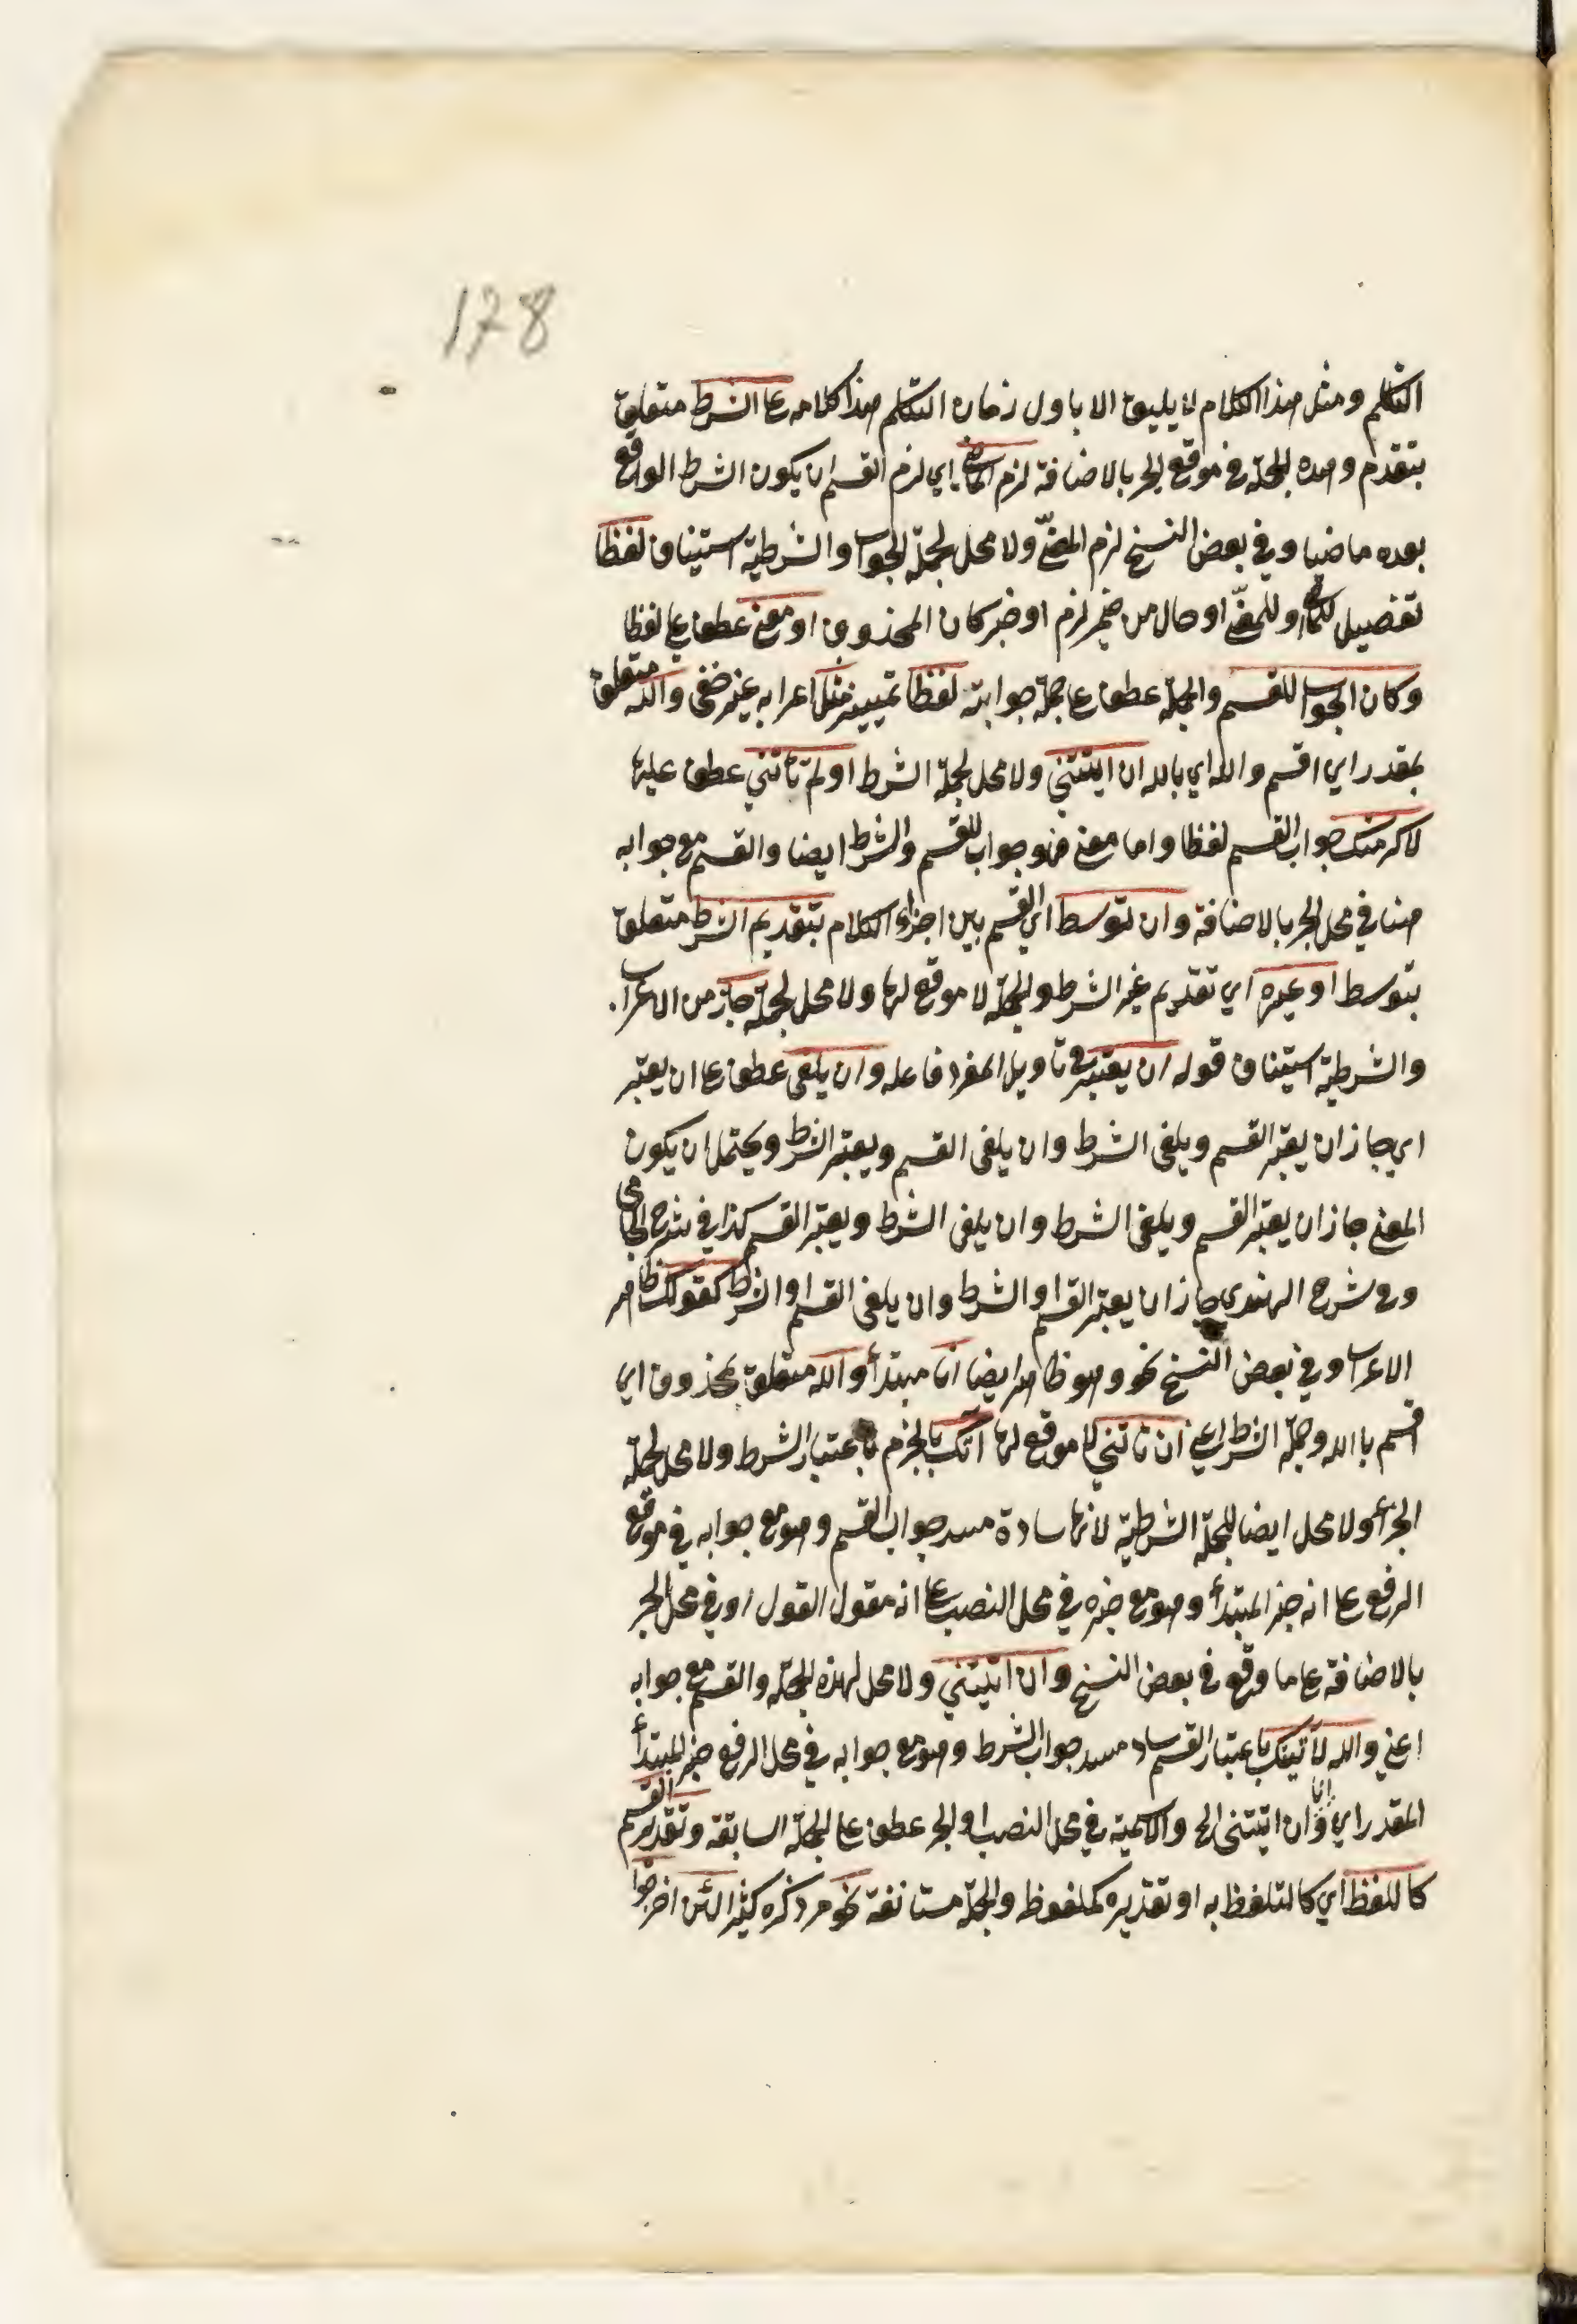 178
التكلم ومثل هذا الكلام لا يليق الا باول زمان التكلم هذا كلامه على الشرط متعلق
بتقدم وهذه الجملة في موقع الجر بالاضافة لزم الماضي اي لزم القسم ان يكون الشرط الواقع
بعده ماضيا وفي بعض النسخ لزم المضي ولا محل لجملة الجواب والشرطية استيناف لفظا
تفصيل للماضي او للمضي او حال من ضمير لزم او خبر كان المحذوف او معنى عطف على لفظا
وكان الجواب للقسم والجملة عطف على جملة جوابية لفظا تمييز مثل اعرابه غير خفي والله متعلق
بمقدر اي اقسم والله اي بالله ان اتيتني ولا محل لجملة الشرط او لم تأتني عطف عليها
لاكرمتك جواب القسم لفظا واما معنى فهو جواب للقسم والشرط ايضا والقسم مع جوابه
هنا في محل الجر بالاضافة وان توسط اي القسم بين اجزاء الكلام بتقديم الشرط متعلق
بتوسط او غيره اي تقديم غير الشرط والجملة لا موقع لها ولا محل لجملة جاز من الاعراب
والشرطية استيناف قوله ان يعتبر في تأويل المفرد فاعله وان يلغى عطف على ان يعتبر
اي جاز ان يعتبر القسم ويلغى الشرط وان يلغى القسم ويعتبر الشرط ويحتمل ان يكون
المعنى جاز ان يعتبر القسم ويلغى الشرط وان يلغى الشرط ويعتبر القسم كذا في شرح الجامي
وفي شرح الهندي جاز ان يعتبر القسم او الشرط وان يلغى القسم او الشرط كقولك ظاهر
الاعراب وفي بعض النسخ نحو وهو ظاهر ايضا انا مبتدأ والله متعلق بمحذوف اي
اقسم باالله وجملة الشرط اعني ان تأتني لا موقع لها آتك بالجزم باعتبار الشرط ولا محل لجملة
الجزاء ولا محل ايضا للجملة الشرطية لانها سادة مسد جواب القسم وهو مع جوابه في موقع
الرفع على انه خبر المبتدأ وهو مع خبره في محل النصب على انه مقول القول او في محل الجر
بالاضافة على ما وقع في بعض النسخ وان اتيتني ولا محل لهذه الجملة والقسم مع جوابه
اعني والله لآتينك باعتبار القسم ساد مسد جواب الشرط وهو مع جوابه في محل الرفع خبر المبتدأ
المقدر اي وانا ان اتيتني الخ والاسمية في محل النصب او الجر عطف على الجملة السابقة وتقدير القسم
كاللفظ اي كالتلفظ به او تقديره كملفوظ والجملة مستانفة نحو مر ذكره كثيرا لئن اخرجوا